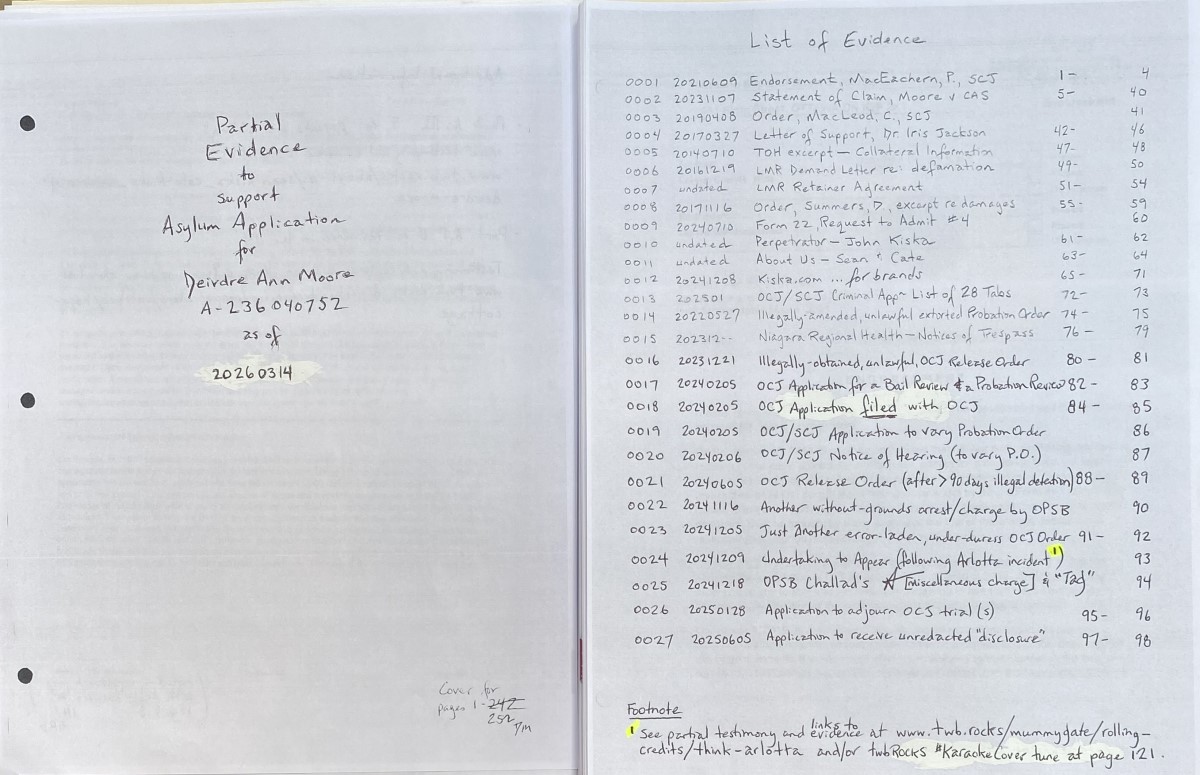 Partial
Evidence
to
support
Asylum Application
for
Deirdre Ann Moore
A-236 040752
as of
20260314
Cover for
pages 1-242
252
List of Evidence
0001 20210609 Endorsement, MacEachern, P., SCJ 1- 4
0002 20231107 Statement of Claim, Moore v CAS 5- 40
0003 20190408 Order, MacLeod, C., SCJ 41
0004 20170327 Letter of Support, Dr. Iris Jackson 42- 46
0005 20140710 TOH excerpt — Collateral Information 47- 48
0006 20161219 LMR Demand Letter re: defamation 49- 50
0007 undated LMR Retainer Agreement 51- 54
0008 20171116 Order, Summers, D, excerpt re damages 55- 59
0009 20240710 Form 22, Request to Admit #4 60
0010 undated Perpetrator — John Kiska 61- 62
0011 undated About Us — Sean & Cate 63- 64
0012 20241208 Kiska.com ... for brands 65- 71
0013 202501 OCJ/SCJ Criminal Appn List of 28 Tabs 72- 73
0014 20220527 Illegally-amended, unlawful extorted Probation Order 74- 75
0015 202312-- Niagara Regional Health — Notices of Trespass 76- 79
0016 20231221 Illegally-obtained, unlawful, OCJ Release Order 80- 81
0017 20240205 OCJ Application for a Bail Review & a Probation Review 82- 83
0018 20240205 OCJ Application filed with OCJ 84- 85
0019 20240205 OCJ/SCJ Application to vary Probation Order 86
0020 20240206 OCJ/SCJ Notice of Hearing (to vary P.O.) 87
0021 20240605 OCJ Release Order (after > 90 days illegal detention) 88- 89
0022 20241116 Another without-grounds arrest/charge by OPSB 90
0023 20241205 Just Another error-laden, under-duress OCJ Order 91- 92
0024 20241209 Undertaking to Appear (following Arlotta incident 1) 93
0025 20241218 OPSB Challad's [miscellaneous charge] & "Tag" 94
0026 20250128 Application to adjourn OCJ trial (s) 95- 96
0027 20250605 Application to receive unredacted "disclosure" 97- 98
Footnote
1 See partial testimony and links to evidence at www.twb.rocks/mummygate/rolling-
credits/think-arlotta and/or twbRocks #KaraokeCover tune at page 121.